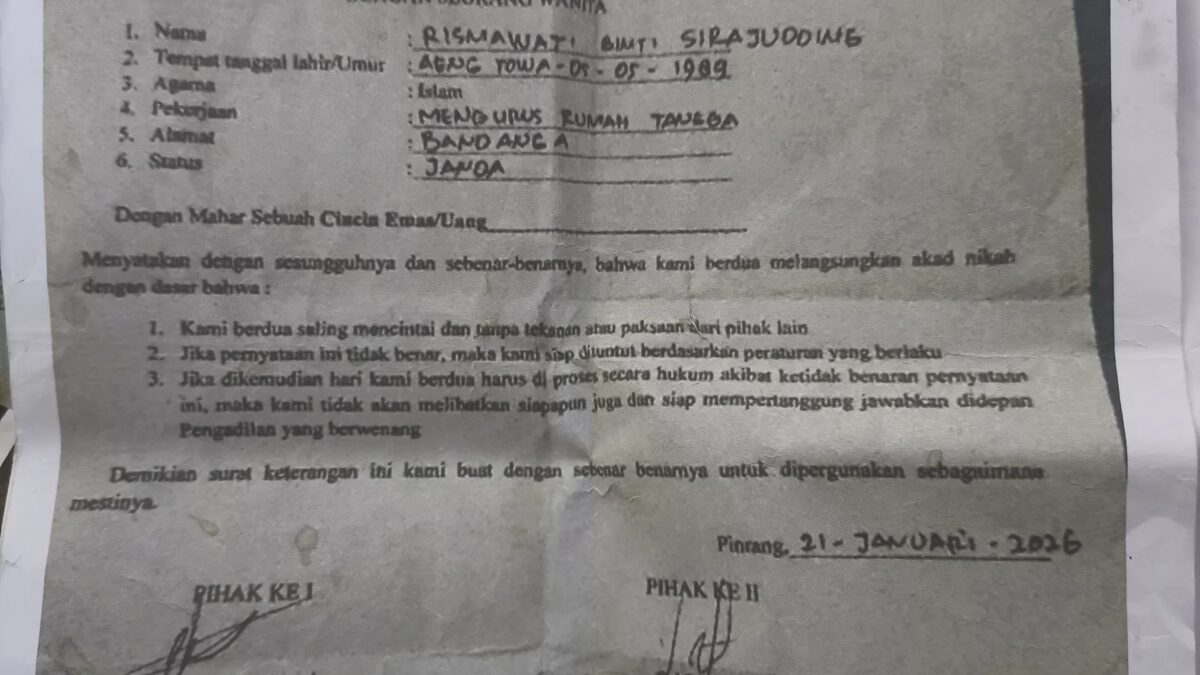 DENGAN SEORANG WANITA
1. Nama : RISMAWATI BINTI SIRAJUDDING
2. Tempat tanggal lahir/Umur : AENG TOWA-05-05-1989
3. Agama : Islam
4. Pekerjaan : MENGURUS RUMAH TANGGA
5. Alamat : BANDANGA
6. Status : JANDA
Dengan Mahar Sebuah Cincin Emas/Uang
Menyatakan dengan sesungguhnya dan sebenar-benarnya, bahwa kami berdua melangsungkan akad nikah
dengan dasar bahwa :
1. Kami berdua saling mencintai dan tanpa tekanan atau paksaan dari pihak lain
2. Jika pernyataan ini tidak benar, maka kami siap dituntut berdasarkan peraturan yang berlaku
3. Jika dikemudian hari kami berdua harus di proses secara hukum akibat ketidak benaran pernyataan
ini, maka kami tidak akan melibatkan siapapun juga dan siap mempertanggung jawabkan didepan
Pengadilan yang berwenang
Demikian surat keterangan ini kami buat dengan sebenar benarnya untuk dipergunakan sebagaimana
mestinya.
Pinrang, 21-JANUARI-2026
PIHAK KE I PIHAK KE II